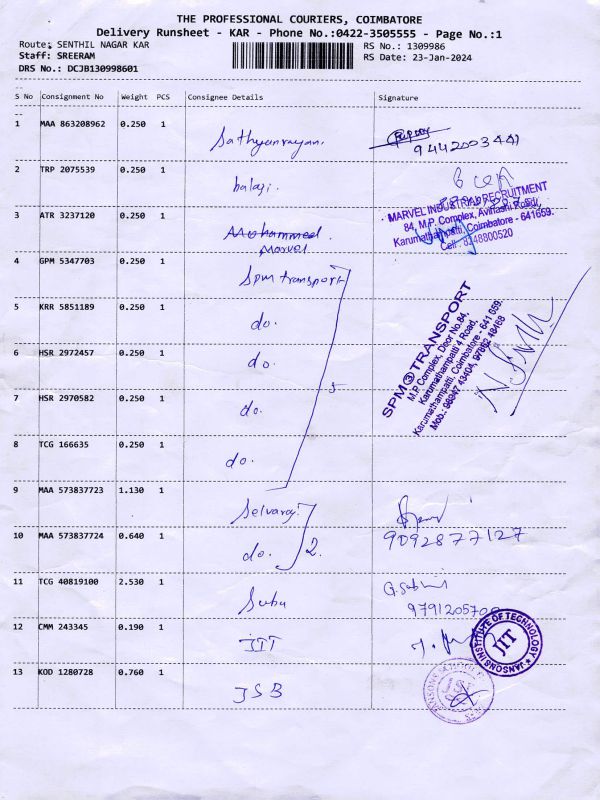 THE PROFESSIONAL COURIERS, COIMBATORE
Delivery Runsheet - KAR - Phone No.:0422-3505555 - Page No.:1
Route: SENTHIL NAGAR KAR RS No.: 1309986
Staff: SREERAM RS Date: 23-Jan-2024
DRS No.: DCJB130998601
S No Consignment No Weight PCS Consignee Details Signature
1 MAA 863208962 0.250 1 Sathyanrayan. 9442003441
2 TRP 2075539 0.250 1 balaji.
3 ATR 3237120 0.250 1 Mohammed
Marvel
MARVEL INDUSTRIAL RECRUITMENT
84, M.P. Complex, Avinashi Road,
Karumathampatti, Coimbatore - 641659.
Cell : 8248800520
4 GPM 5347703 0.250 1 Spm transport
5 KRR 5851189 0.250 1 do.
6 HSR 2972457 0.250 1 do.
7 HSR 2970582 0.250 1 do. 5
8 TCG 166635 0.250 1 do.
SPM TRANSPORT
M.P Complex, Door No.84,
Karumathampatti 4 Road,
Karumathampatti, Coimbatore - 641 059.
Mob.: 98947 43404, 97862 48468
9 MAA 573837723 1.130 1 Selvaraj
10 MAA 573837724 0.640 1 do. 2. 9092877127
11 TCG 40819100 2.530 1 Subu
12 CMM 243345 0.190 1 JIT
JANSONS INSTITUTE OF TECHNOLOGY
JIT
13 KOD 1280728 0.760 1 JSB